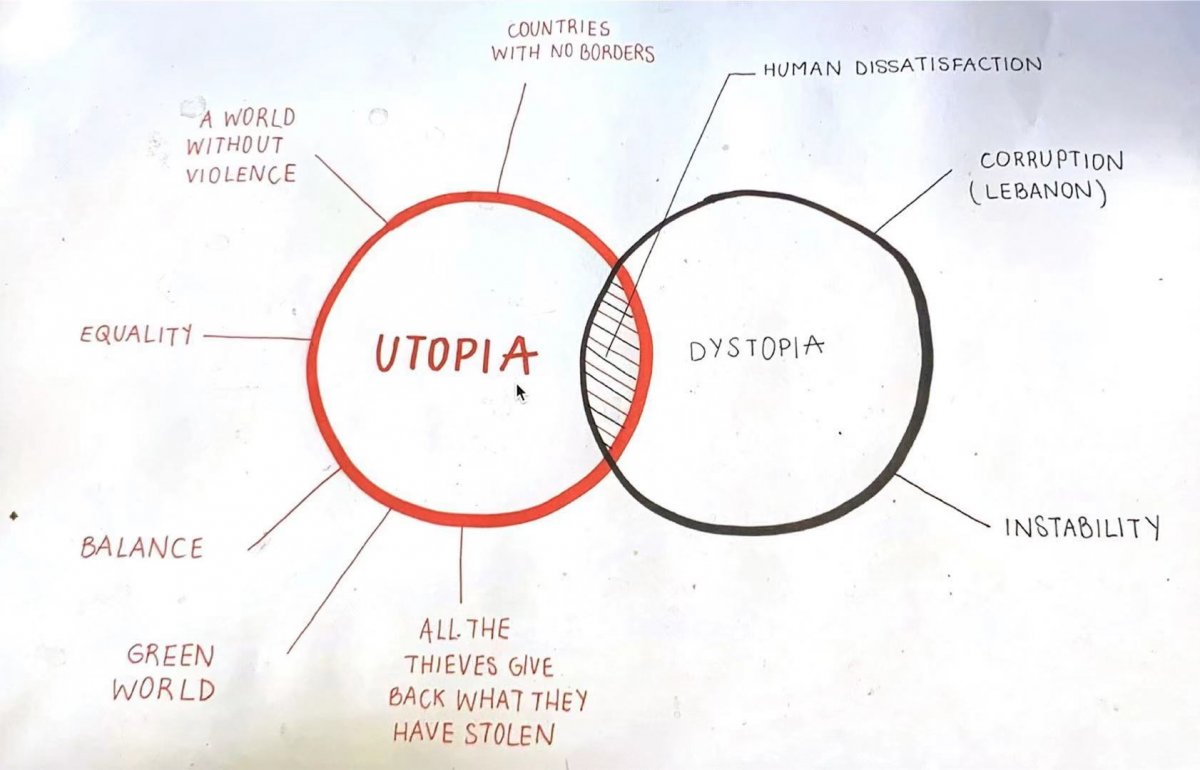 COUNTRIES
WITH NO BORDERS
HUMAN DISSATISFACTION
A WORLD
WITHOUT
VIOLENCE
CORRUPTION
(LEBANON)
EQUALITY
UTOPIA
DYSTOPIA
BALANCE
INSTABILITY
GREEN
WORLD
ALL THE
THIEVES GIVE
BACK WHAT THEY
HAVE STOLEN